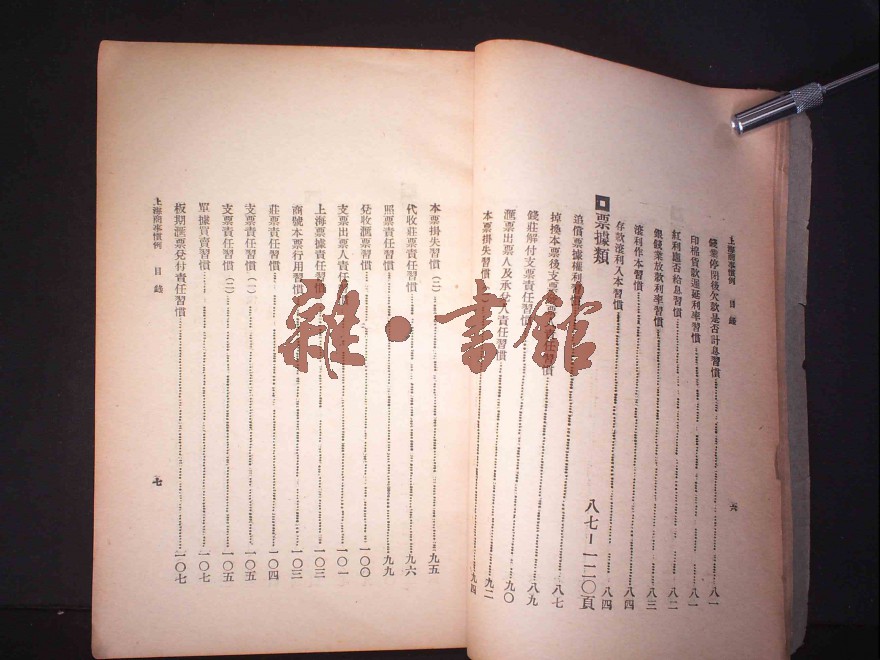 上海商事慣例　目錄　六
錢業停閉後欠款是否計息習慣……八一
印棉貨款遲延利率習慣……八一
紅利應否給息習慣……八二
銀錢業放款利率習慣……八三
滾利作本習慣……八四
存款滾利入本習慣……八四
票據類　八七—一二〇頁
追償票據權利習慣
掉換本票後支票責任習慣……八七
錢莊解付支票責任習慣……八九
滙票出票人及承兌人責任習慣……九〇
本票掛失習慣……九二
九四
本票掛失習慣（二）……九五
代收莊票責任習慣……九六
照票責任習慣……九九
兌收滙票習慣……一〇〇
支票出票人責任習慣……一〇一
上海票據責任習慣……一〇三
商號本票行用習慣……一〇三
莊票責任習慣……一〇四
支票責任習慣（一）……一〇五
支票責任習慣（二）……一〇五
單據買賣習慣……一〇七
板期滙票兌付責任習慣……一〇七
上海商事慣例　目錄　七
雜·書館